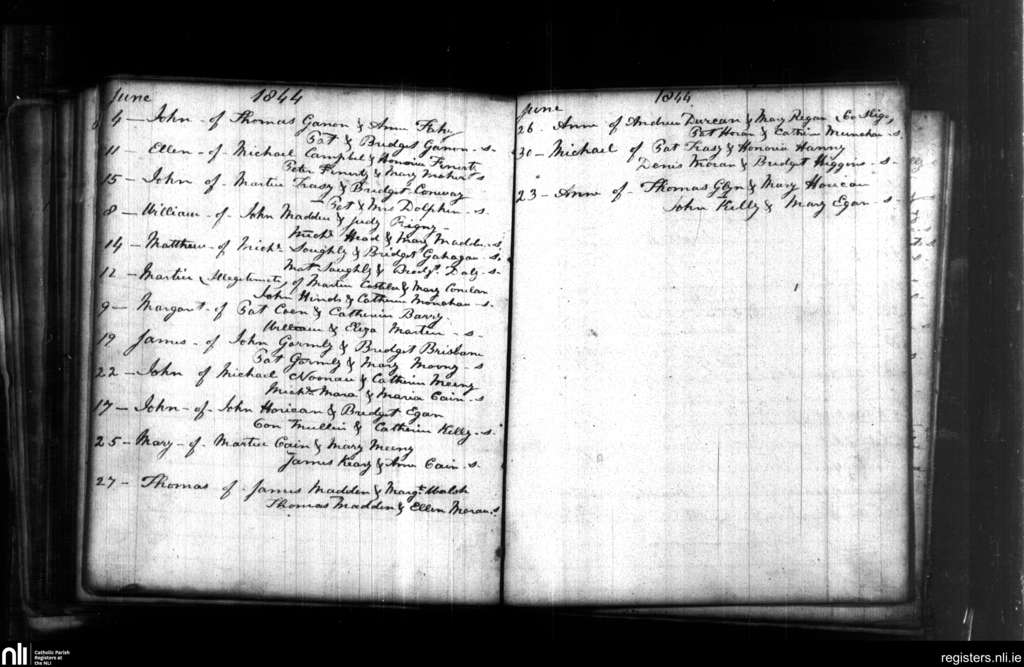 June 1844
4 - John - of Thomas Ganon & Ann Fahy
Pat & Bridget Ganon - s.
11 - Ellen - of Michael Campbel & Honoria
Peter & Mary Maher s
15 - John of Martin Trasy & Bridget Conway
Pat & Mrs Dolphin - s.
8 - William - of John Madden & Judy
Michl. Head & Mary Madden - s.
14 - Matthew - of Michl. Loughly & Bridget Gahagan - s.
Mat Loughly & Bridgt. Daly - s.
12 - Martin (Illegitimate) of Martin Costelo & Mary Conelan
John Hinds & Catherin Monahan - s.
9 - Margaret. of Pat Coen & Catherin Barry.
William & Eliza Martin - s.
19 James - of John Gormly & Bridget Brisbane
Pat Gormly & Mary Moony - s
22 - John of Michael Noonan & Catherin Meeny
Michl. Mara & Maria Cain - s
17 - John - of - John Horican & Bridget Egan
Con Mullin & Catherin Kelly - s.
25 - Mary - of Martin Cain & Mary Meeny
James Keary & Ann Cain - s.
27 - Thomas of - James Madden & Margt. Walsh
Thomas Madden & Ellen Moran - s
June 1844
26 - Ann of Andrew Durcan & Mary Regan Co Sligo
Pat Horan & Cathrin - s.
30 - Michael of Pat Trasy & Honoria Hanny
Denis Moran & Bridget Higgins - s
23 - Ann of - Thomas Glyn & Mary Horican
John Kelly & Mary Egan - s
nli
Catholic Parish
Registers at
the NLI
registers.nli.ie